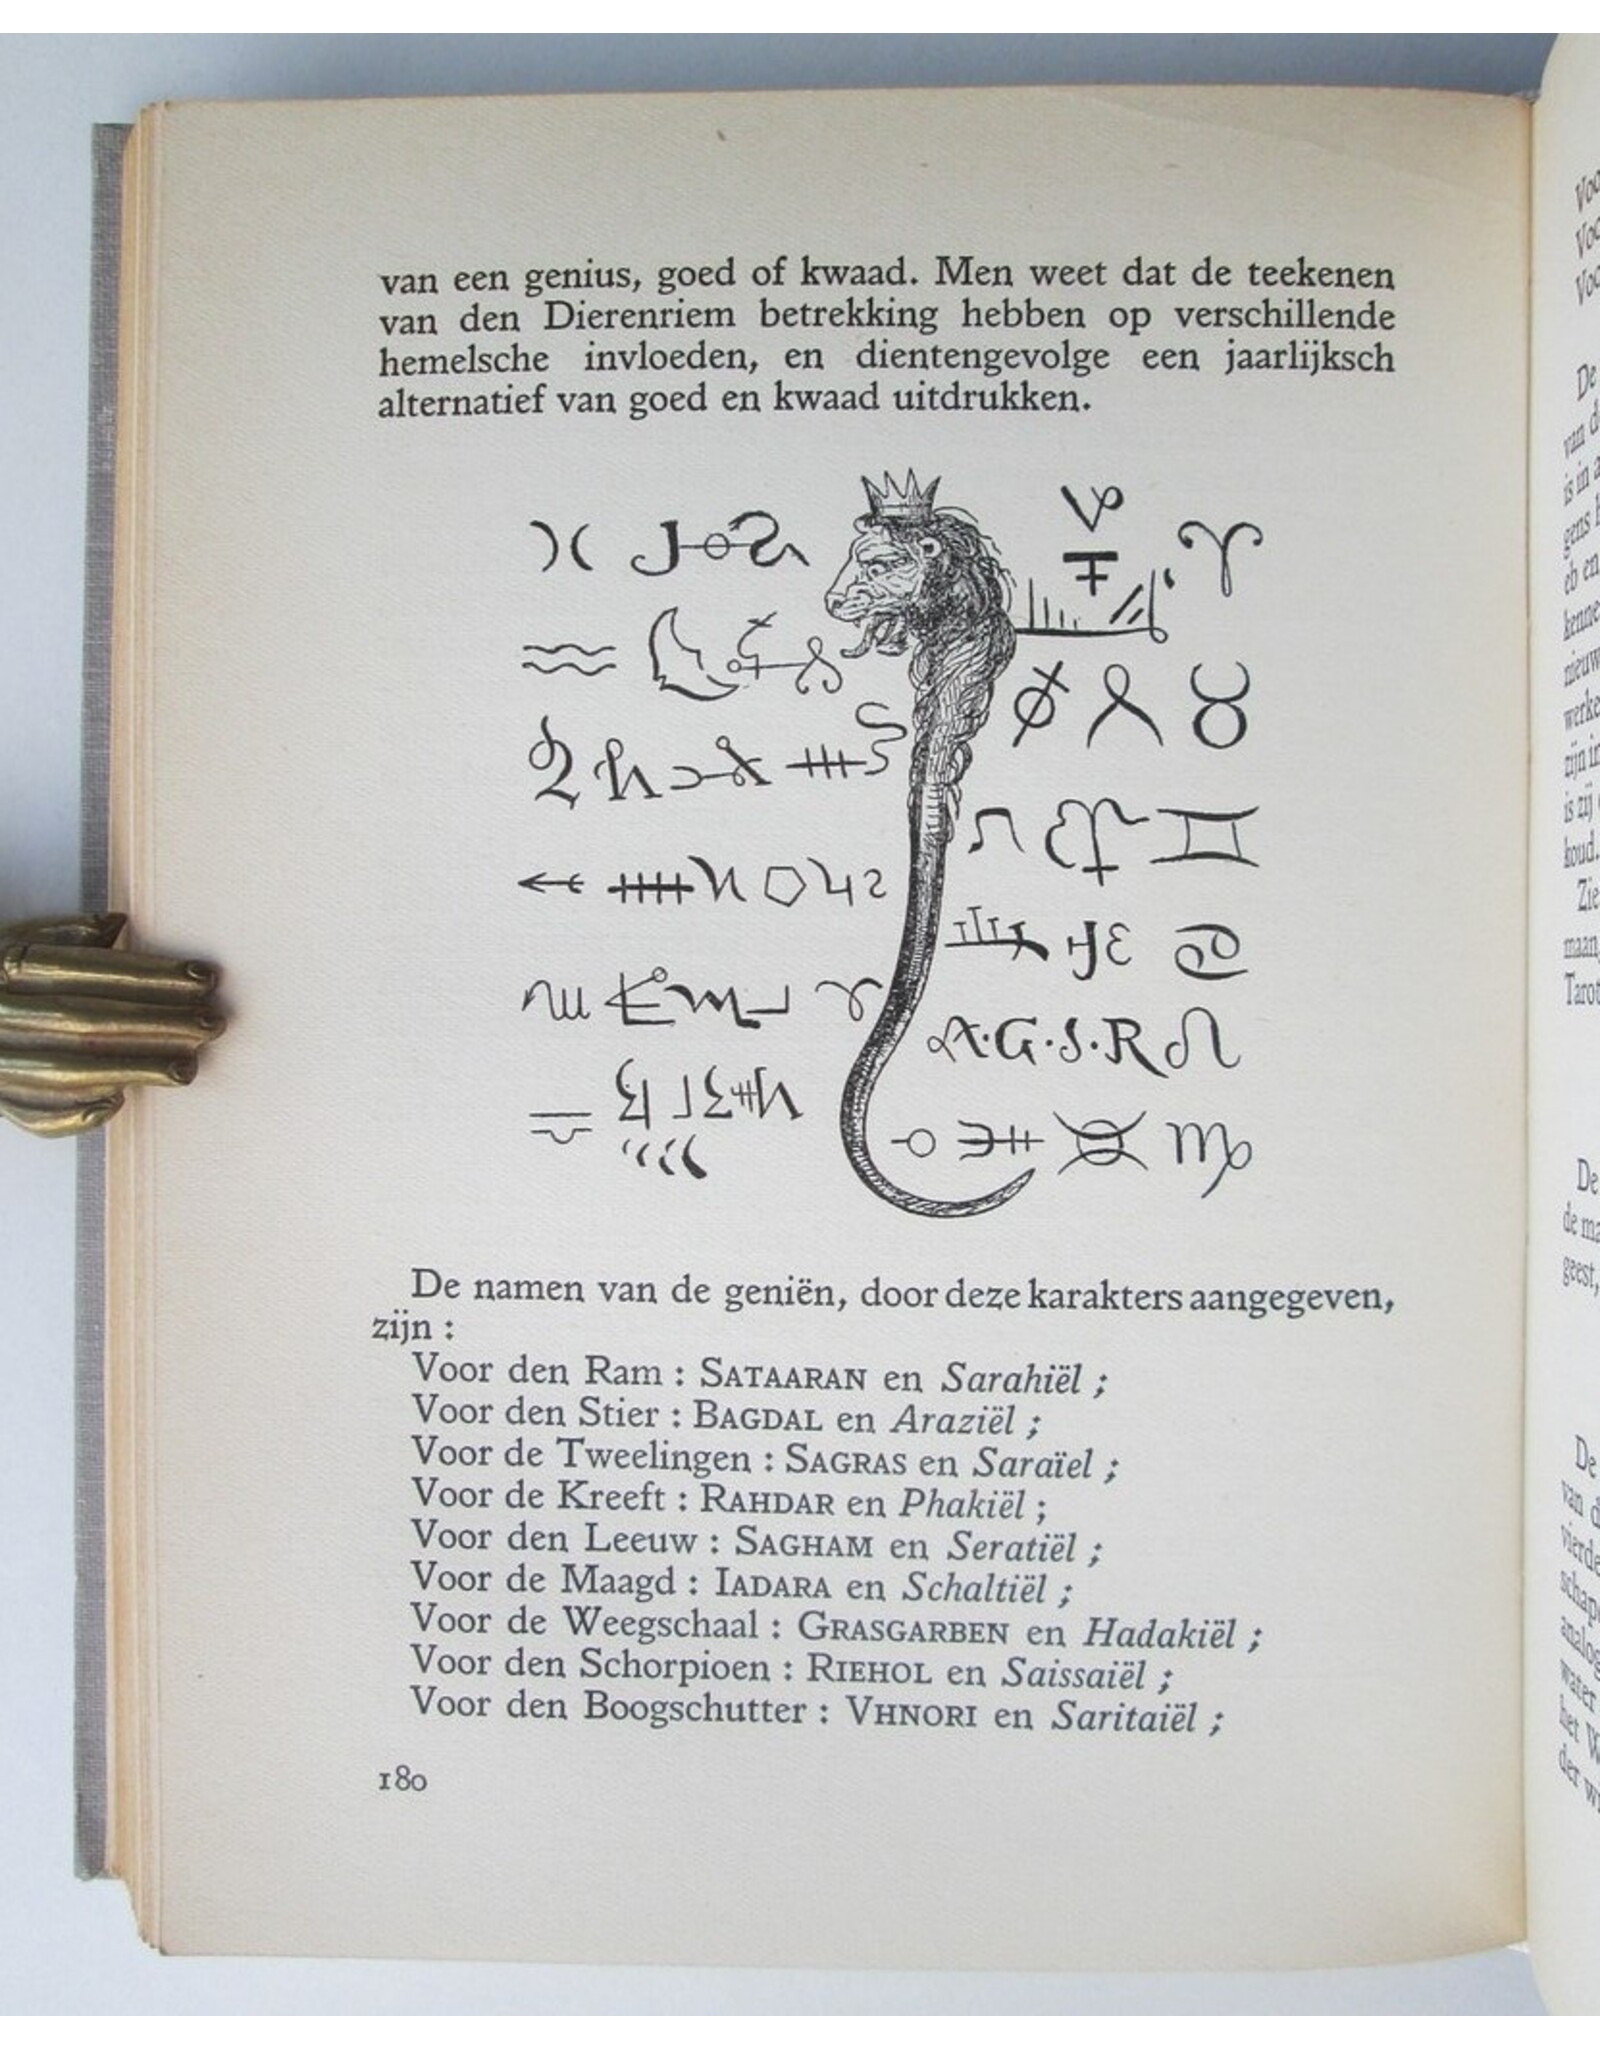 van een genius, goed of kwaad. Men weet dat de teekenen
van den Dierenriem betrekking hebben op verschillende
hemelsche invloeden, en dientengevolge een jaarlijksch
alternatief van goed en kwaad uitdrukken.
A·G·S·R
De namen van de geniën, door deze karakters aangegeven,
zijn :
Voor den Ram : SATAARAN en Sarahiël ;
Voor den Stier : BAGDAL en Araziël ;
Voor de Tweelingen : SAGRAS en Saraïel ;
Voor de Kreeft : RAHDAR en Phakiël ;
Voor den Leeuw : SAGHAM en Seratiël ;
Voor de Maagd : IADARA en Schaltiël ;
Voor de Weegschaal : GRASGARBEN en Hadakiël ;
Voor den Schorpioen : RIEHOL en Saissaiël ;
Voor den Boogschutter : VHNORI en Saritaiël ;
180